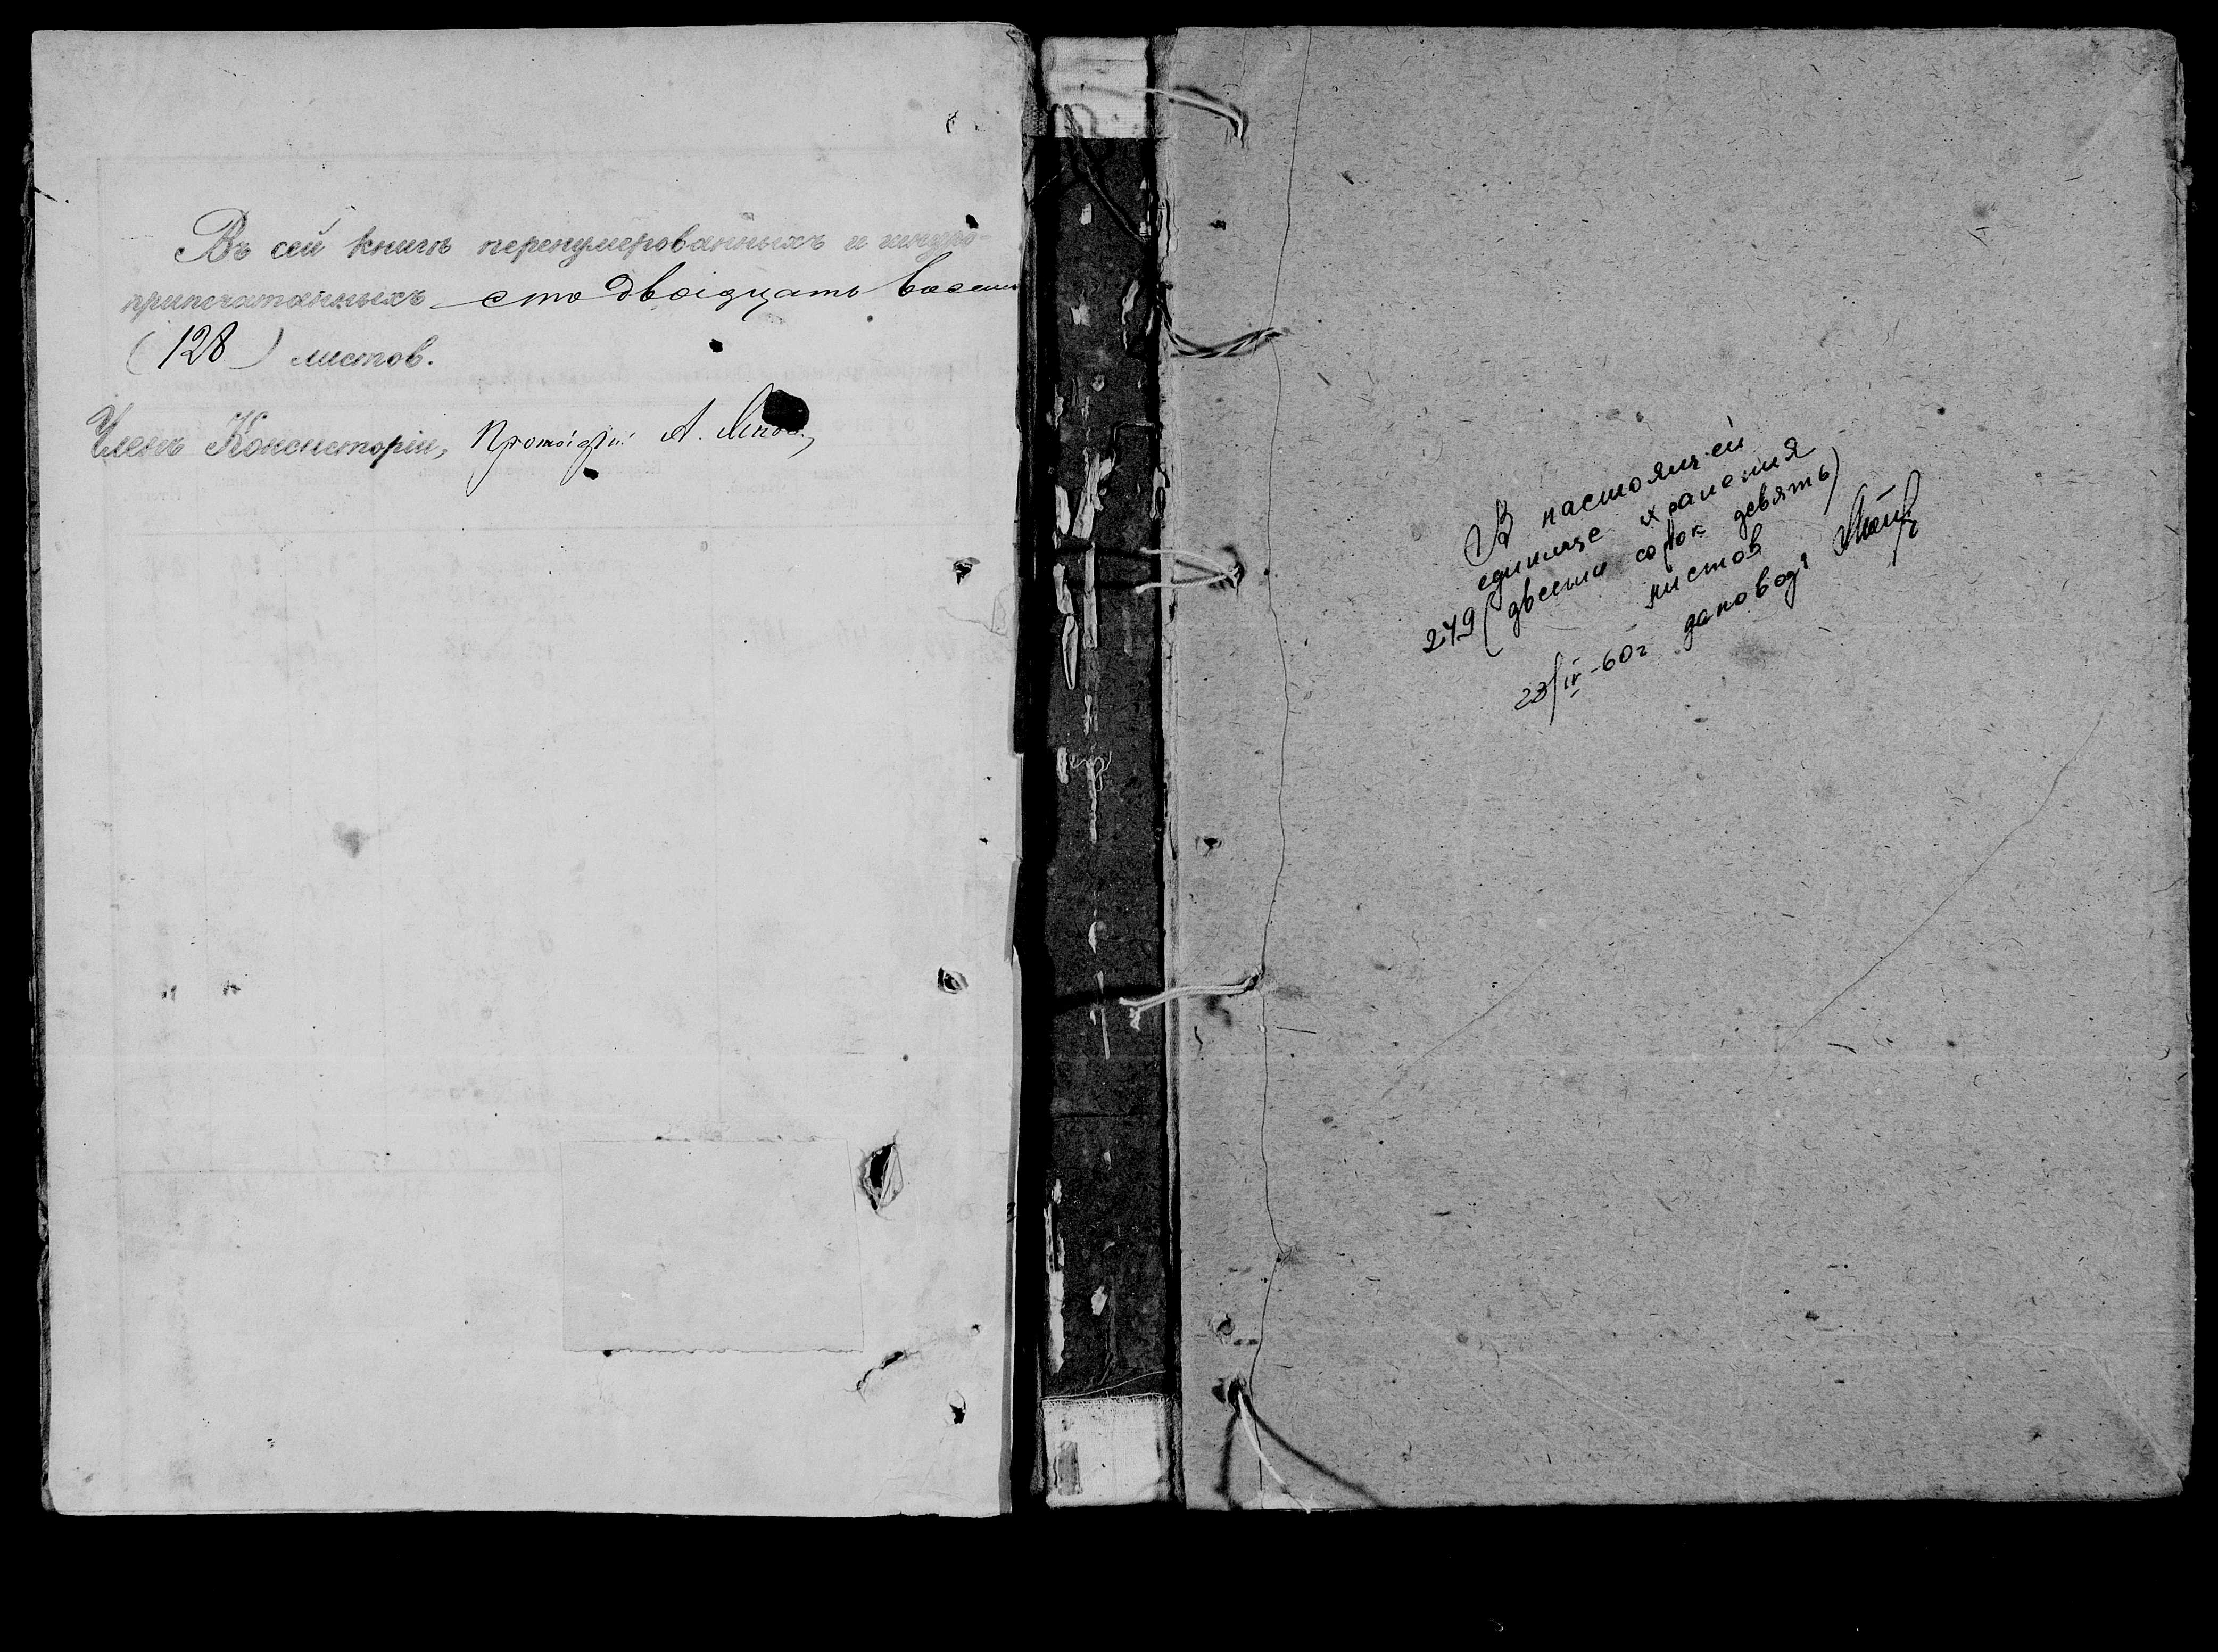 Въ сей книгѣ перенумерованныхъ и шнуро-
припечатанныхъ сто двадцать восемь
(128) листов.
Членъ Консисторіи, Протоіерей А.
В настоящей
единице хранения
249 (двести сорок девять)
листов
23/IV-60г